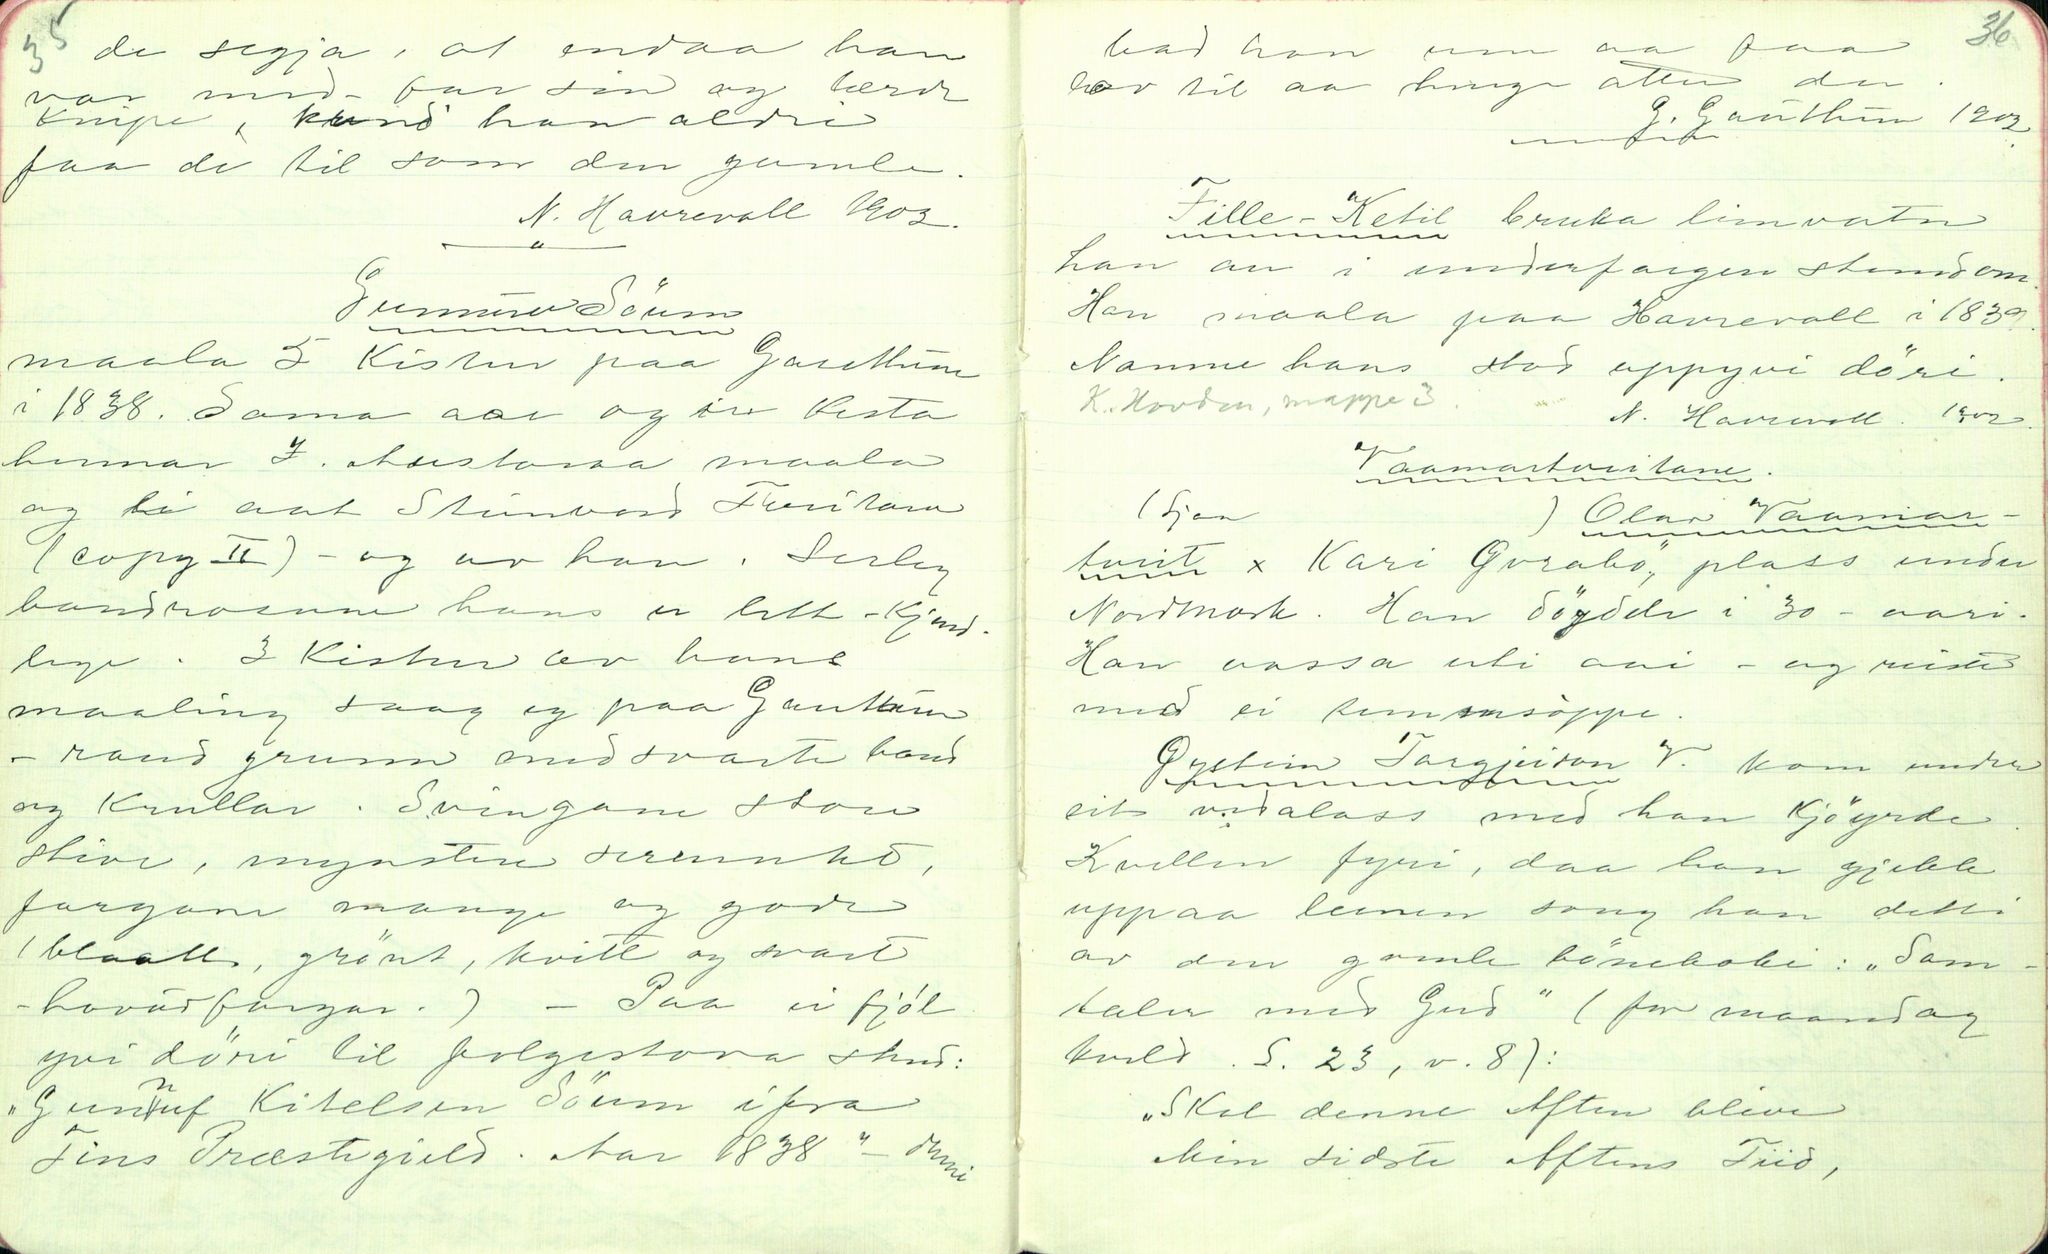 35
de segja, at endaa han
var med far sin og lærde
knipe, kund han aldri
faa de til som den gamle.
N. Havrevoll 1902.
Gunnuv Söum
maala 5 Kister paa Gauthun
i 1838. Sama aar og besta
hennar Z. Aastaraa maala
og ei aat Steinvor Tveitane
(copy II) - og av han. Serleg
bandrosune hans er lett-kjend-
lege. 3 Kister av hans
maaling saag eg paa Gauthun
- raud grunn med svarte band
og Krullar. Svingane store
stive, mynstere serennt,
fargane mange og gode
(blaatt, grönt, kvitt og svart
- hovudfargar.) - Paa ei fjöl
yvi döri til folgestova stend:
"Gunnuf Kitelsen Söum ifra
Tins Præstegield. Aar 1838" - denni
36
bad han um aa faa
lov til aa henge atter der.
G. Gauthun 1902
Fille-Ketil bruka limvatn
han au i underfargen stundom.
Han maala paa Havrevoll i 1839.
Namne hans stod uppyvi döri.
K. Hovden, mappe 3.
N. Havrevoll. 1902.
Vaamartveitane.
(Sjaa ) Olav Vaamar-
tveit x Kari Gvrabö, plass under
Nordmork. Han döydde i 30-aari.
Han vassa uti aai - og reiste
med ei temmsöppe.
Øystein Targjeison V. kom under
eit vedalass med han kjöyrde.
Kvellen fyri, daa han gjekk
uppaa lemen song han detti
av den gamle böneboki: "Sam-
taler med Gud" (for maandag
kveld. S. 23, v. 8):
"Skal denne Aften blive
Min sidste Aftens Tiid,